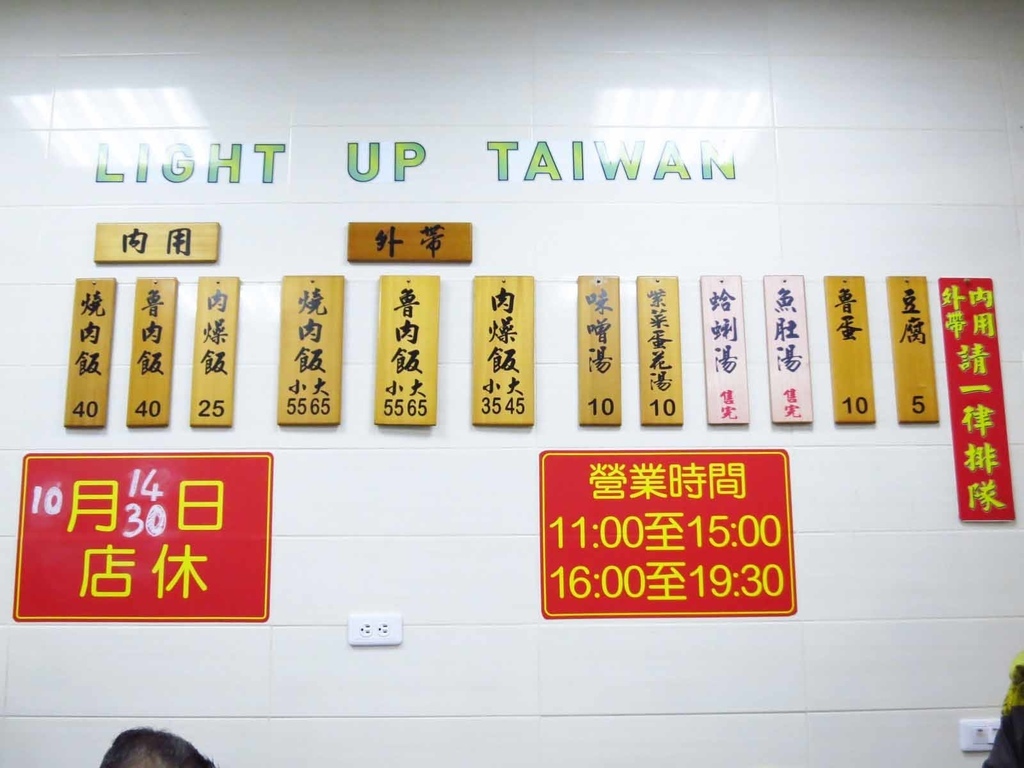 LIGHT UP TAIWAN
內用
外帶
燒肉飯 40
魯肉飯 40
肉燥飯 25
燒肉飯 小55 大65
魯肉飯 小55 大65
肉燥飯 小35 大45
味噌湯 10
紫菜蛋花湯 10
蛤蜊湯 售完
魚肚湯 售完
魯蛋 10
豆腐 5
內用
外帶
請一律排隊
10月14 30日
店休
營業時間
11:00至15:00
16:00至19:30